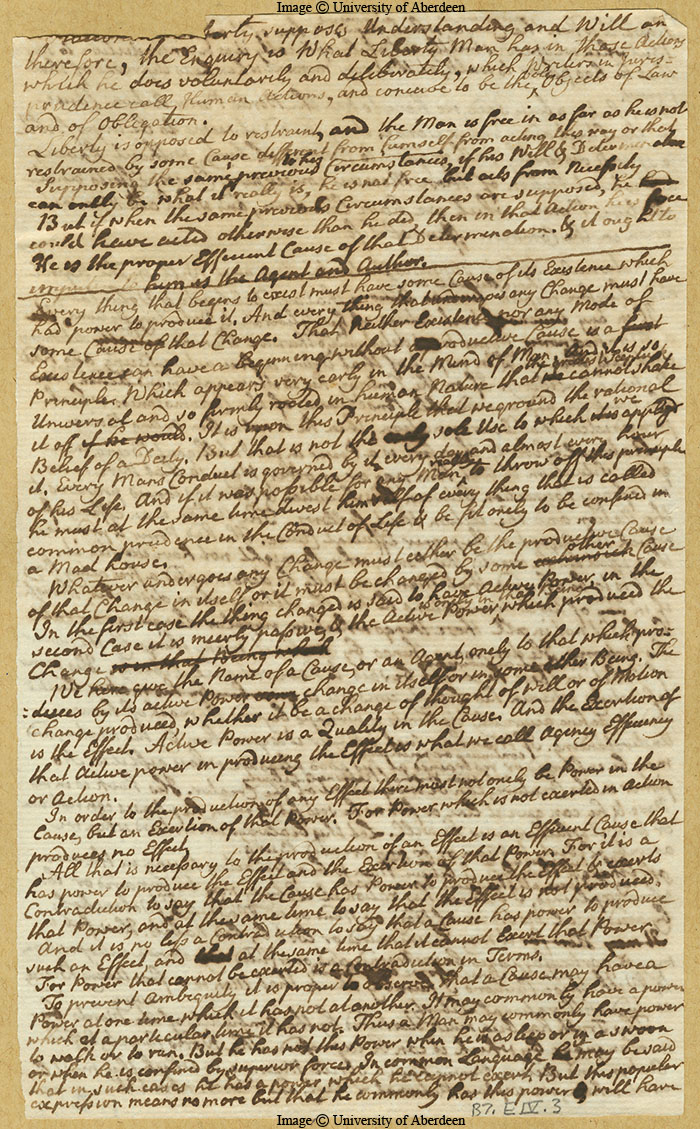 Image © University of Aberdeen
Liberty supposes Understanding and Will an
therefore, the Enquiry is What Liberty Man has in those Actions
which he does voluntarily and deliberately, which Writers in Juris=
prudence call Human Actions, and conceive to be the only Objects of Law
and of Obligation.
Liberty is opposed to restraint, and the Man is free in as far as he is not
restrained by some Cause different from himself from acting this way or that
Supposing the same previous Circumstances, if his Will & Determination
can only be what it really is, he is not free but acts from Necessity
But if when the same previous Circumstances are supposed, he
could have acted otherwise than he did, then in that Action he is free
He is the proper Efficient Cause of that Determination. & it ought to
to him as the Agent and Author.
Every thing that begins to exist must have some Cause of its Existence which
had power to produce it. And every thing that undergoes any Change must have
some Cause of that Change. That Neither Existence nor any Mode of
Existence can have a beginning without a productive Cause is a first
Principle. Which appears very early in the Mind of Man. And it is so
Universal and so firmly rooted in human Nature that the cannot shake
it off if he would. It is upon this Principle that we ground the rational
Belief of a Deity. But that is not the only sole Use to which it is applyd
it. Every Mans Conduct is governed by it every day and almost every hour
of his Life. And if it was possible for any Man to throw off this principle
he must at the same time divest himself of every thing that is called
common prudence in the Conduct of Life & be fit onely to be confined in
a Mad house.
Whatever undergoes any Change must either be the productive Cause
of that Change in itself or it must be changed by some other Cause
In the first case the thing changed is said to have Active Power, in the
second Case it is meerly passive & the Active Power which produced the
Change
We here give the Name of a Cause, or an Agent, onely to that which pro=
=duces by its active Power change in itself or in some other Being. The
change produced, whether it be a change of thought of will or of Motion
is the Effect. Active Power is a Quality in the Cause. And the Exertion of
that Active power in producing the Effect is what we call Agency Efficiency
or Action.
In order to the production of any Effect there must not onely be Power in the
Cause, but an Exertion of that Power. For Power which is not exerted in Action
produces no Effect
All that is necessary to the production of an Effect is an Efficient Cause that
has power to produce the Effect and the Exertion of that Power. For it is a
Contradiction to say that the Cause has Power to produce the Effect & exerts
that Power, and at the same time to say that the Effect is not produced.
And it is no less a Contradiction to say that a Cause has power to produce
such an Effect and at the same time that it cannot Exert that Power
For Power that cannot be exerted is a Contradiction in Terms.
To prevent ambiguity it is proper to observe that a Cause may have a
Power at one time which it has not at another. It may commonly have a power
which at a particular time it has not. Thus a Man may commonly have power
to walk or to run. But he has not this Power when he is asleep or in a swoon
or when he is confined by superior force. In common Language he may be said
that in such cases he has a power which he cannot exert. But this popular
expression means no more but that he commonly has this power & will have
B7. E IV. 3
Image © University of Aberdeen